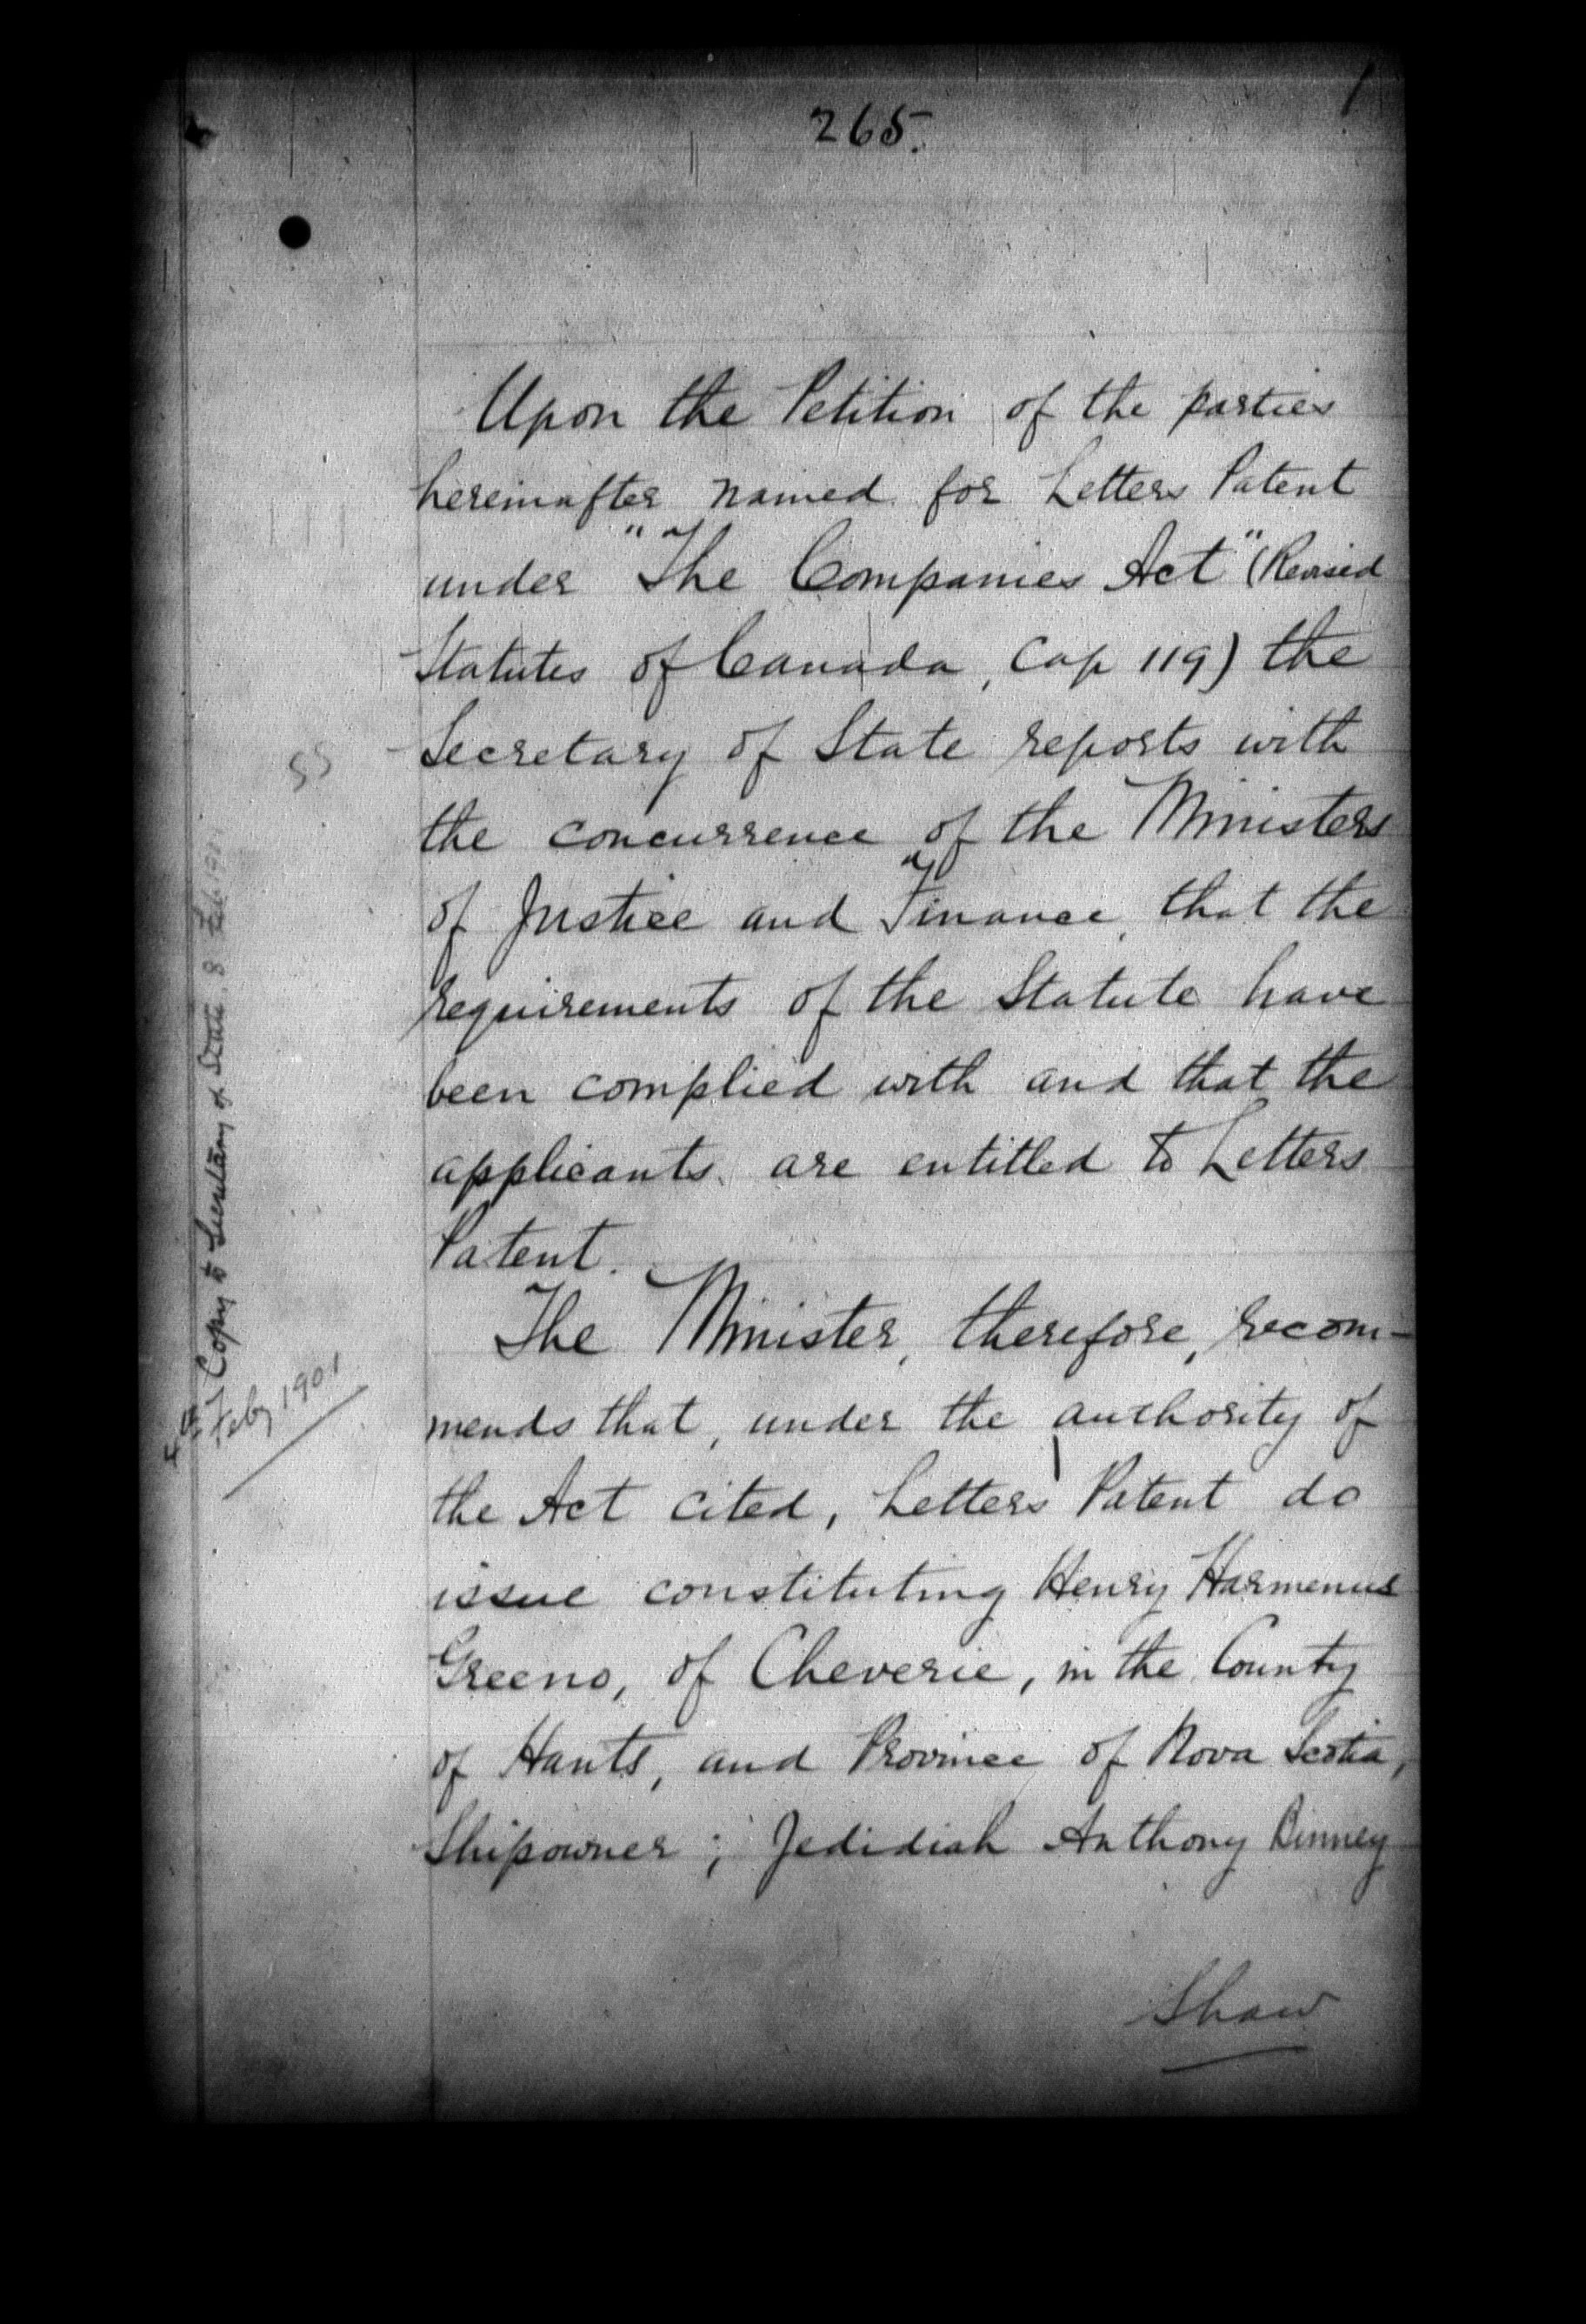 265.
Upon the Petition of the parties
hereinafter named for Letters Patent
under "The Companies Act" (Revised
Statutes of Canada, Cap 119) the
Secretary of State reports with
the concurrence of the Ministers
of Justice and Finance, that the
requirements of the Statute have
been complied with and that the
applicants are entitled to Letters
Patent.
The Minister, therefore, recom-
mends that, under the authority of
the Act cited, Letters Patent do
issue constituting Henry Harmenus
Greeno, of Cheverie, in the County
of Hants, and Province of Nova Scotia,
Shipowner; Jedidiah Anthony Binney
Shaw
SS
Copy to Secretary of State, 8 Feb. 1901
Feby 1901